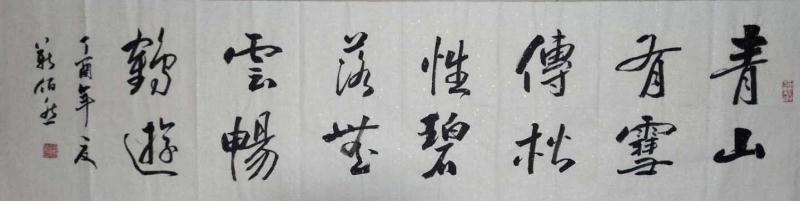 青山
有雪
傳松
性碧
落無
雲暢
鶴遊
丁酉年夏